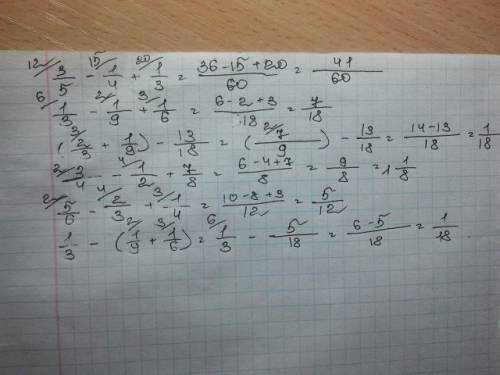 12/ 3/5 - 15/ 1/4 + 20/ 1/3 = (36-15+20)/60 = 41/60
6/ 1/3 - 2/ 1/9 + 3/ 1/6 = (6-2+3)/18 = 7/18
(3/ 2/3 + 1/9) - 13/18 = (2/ 7/9) - 13/18 = (14-13)/18 = 1/18
2/ 3/4 - 4/ 1/2 + 7/8 = (6-4+7)/8 = 9/8 = 1 1/8
2/ 5/6 - 4/ 2/3 + 3/ 1/4 = (10-8+3)/12 = 5/12
1/3 - (2/ 1/9 + 3/ 1/6) = 6/ 1/3 - 5/18 = (6-5)/18 = 1/18